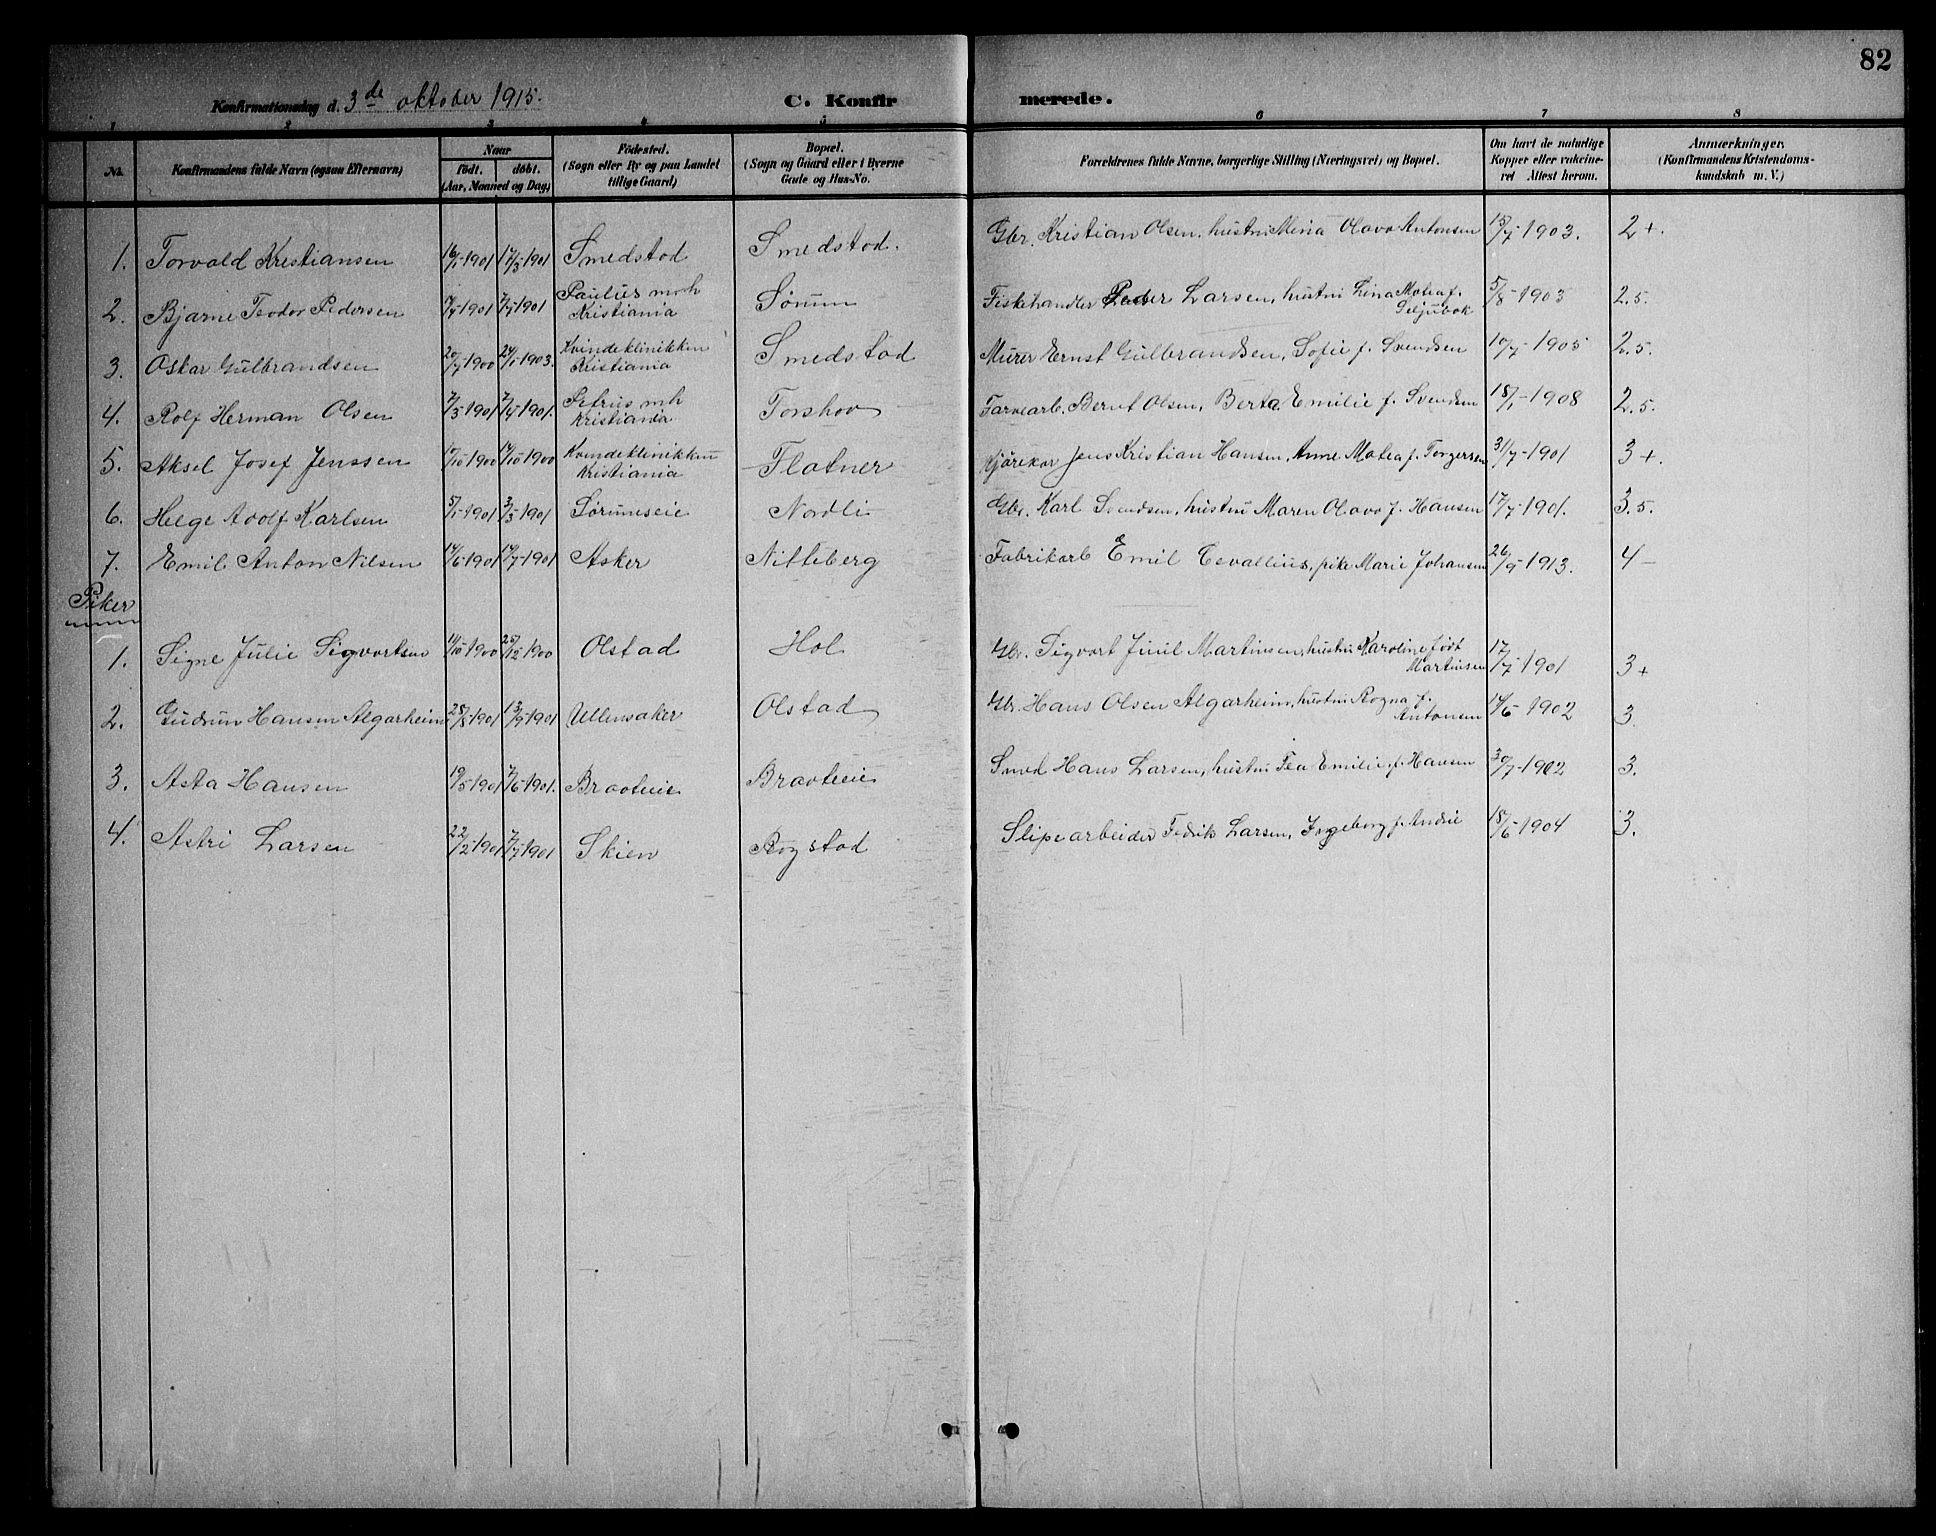 82
Konfirmationsdag d. 3de oktober 1915. C. Konfirmerede.
1 2 3 4 5 6 7 8
No. Konfirmandens fulde Navn (ogsaa Efternavn) Naar født. døbt. (Aar, Maaned og Dag) Fødested. (Sogn eller By og paa Landet tillige Gaard) Bopæl. (Sogn og Gaard eller i Byerne Gade og Hus-No. Forældrenes fulde Navne, borgerlige Stilling (Næringsvei) og Bopæl. Om havt de naturlige Kopper eller vakcineret Attest herom. Anmærkninger. (Konfirmandens Kristendomskundskab m. V.)
1. Torvald Kristiansen 16/1-1901 17/3-1901 Smedstad Smedstad. Gbr. Kristian Olsen, hustru Mina Olava Antonsen 15/7-1903. 2+.
2. Bjarne Teodor Pedersen 1901 1901 Paulus mh Kristiania Sørum Fiskehandler Peder Larsen, hustru Lina Matea f. 5/8-1903 2.5.
3. Oskar Gulbrandsen 20/7-1900 24/1-1903. Kvindeklinikken Kristiania Smedstad Murer Ernst Gulbrandsen, Sofie f. Svendsen 10/7-1905 2.5.
4. Rolf Herman Olsen 1901 1901. Petrus mh Kristiania Torshov Farvearb. Bernt Olsen, Berta Emilie f. Svendsen 18/1-1908 2.5.
5. Aksel Josef Jenssen 1900 1900 Kvindeklinikken Kristiania Flatner Kjørekar Jens Kristian Hansen, Anne Matea f. Torgersen 31/7-1901 3+.
6. Helge Adolf Karlsen 5/1-1901 3/3-1901 Sørumseie Nordli Gbr. Karl Svendsen, hustru Maren Olava f. Hansen 17/7-1901. 3.5.
7. Emil Anton Nilsen 14/6-1901 14/7-1901 Asker Nitteberg Fabrikarb Emil Cevallius, pike Marie Johansen 26/9-1913. 4-
Piker
1. Signe Julie Sigvartsen 1900 26/12-1900 Olstad Hol Gbr. Sigvart Juul Martinsen, hustru Karoline født Martinsen 17/7-1901 3+
2. Gudrun Hansen Algarheim 28/8-1901 13/9-1901 Ullensaker Olstad Gbr. Hans Olsen Algarheim, hustru Ragna f. Antonsen 14/6-1902 3.
3. Asta Hansen 19/5-1901 1901. Braateeie Braateeie Smed Hans Larsen, hustru Tea Emilie f. Hansen 30/7-1902 3.
4. Astri Larsen 22/2-1901 7/7-1901 Skien Rogstad Sliperarbeider Fedrik Larsen, Ingeborg f. 18/6-1904 3.